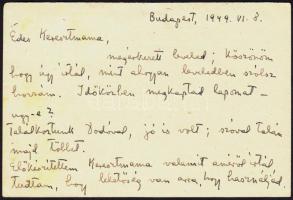 Budapest, 1949. VI. 8.
Édes Keresztmama,
megérkezett leveled; Köszönöm
hogy úgy írtál, mint ahogyan leveledben szólsz
hozzám. Időközben megkaptad lapomat –
ugy-e?
Találkoztunk Dodóval, jó is volt; szóval talán
majd
Előkészítettem Keresztmama valamit amiről írtál
Tudtam, hogy lehetőség van arra, hogy használjad.